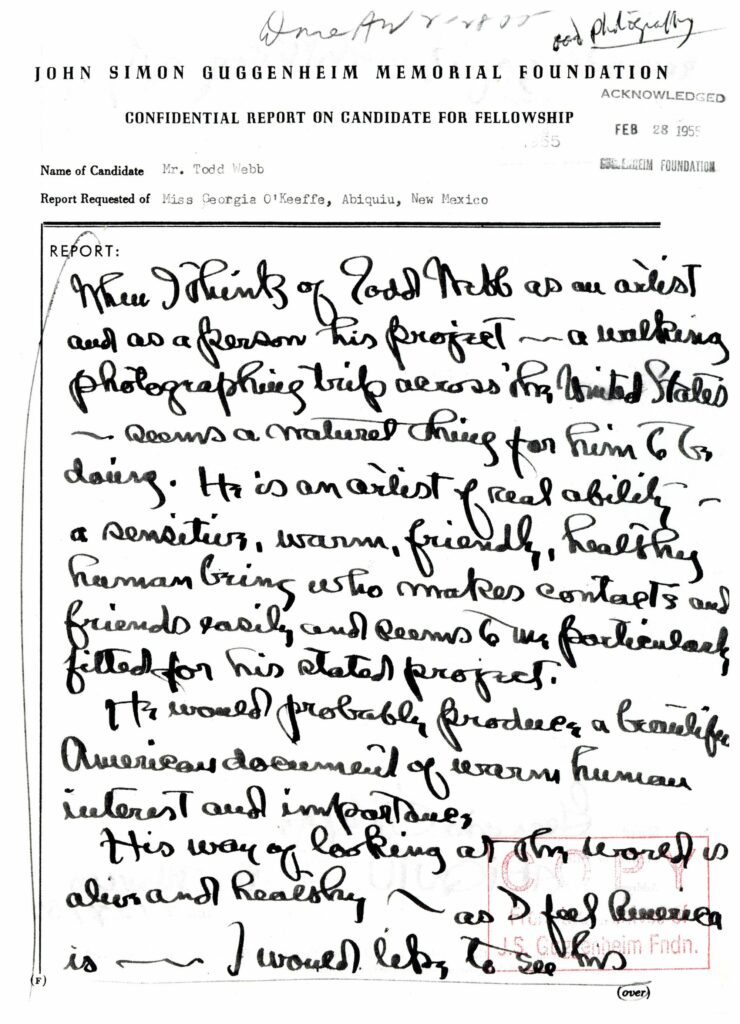 and photography
JOHN SIMON GUGGENHEIM MEMORIAL FOUNDATION
ACKNOWLEDGED
CONFIDENTIAL REPORT ON CANDIDATE FOR FELLOWSHIP
FEB 28 1955
1955
GUGGENHEIM FOUNDATION
Name of Candidate Mr. Todd Webb
Report Requested of Miss Georgia O'Keeffe, Abiquiu, New Mexico
REPORT:
When I think of Todd Webb as an artist
and as a person his project ~ a walking
photographing trip across the United States
~ seems a natural thing for him to be
doing. He is an artist of real ability ~
a sensitive, warm, friendly, healthy
human being who makes contacts and
friends easily and seems to me particularly
fitted for his stated project.
He would probably produce a beautiful
American document of warm human
interest and importance
His way of looking at the world is
alive and healthy ~ as I feel America
is ~ I would like to see his
COPY
J.S. Guggenheim Fndn.
(F)
(over)